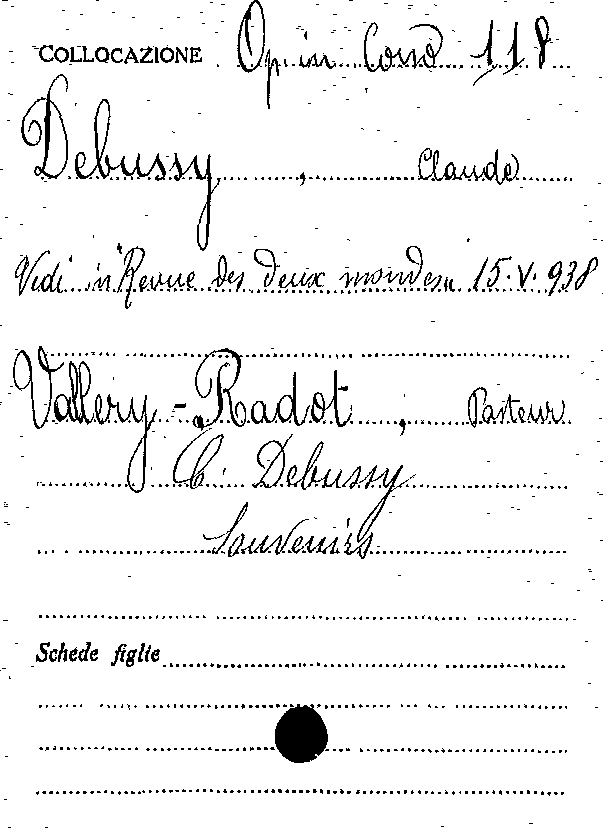 COLLOCAZIONE Op. in Corso 118
Debussy, Claude
Vedi in "Revue des deux mondes" 15.V.938
Vallery-Radot, Pasteur
C. Debussy
Souvenirs
Schede figlie